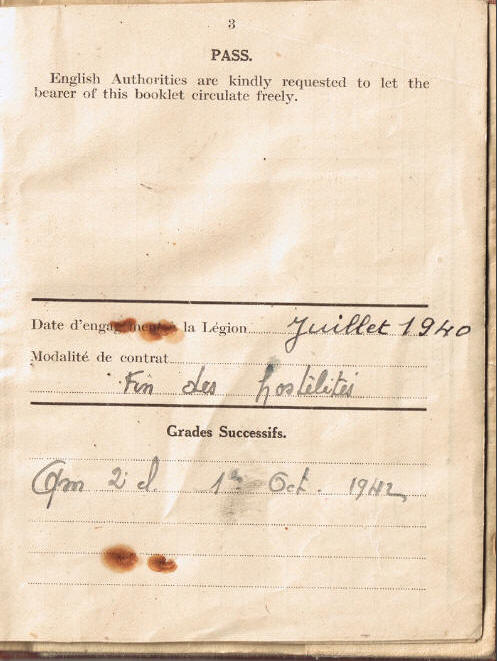 3
PASS.
English Authorities are kindly requested to let the
bearer of this booklet circulate freely.
Date d'engagement à la Légion Juillet 1940
Modalité de contrat
Fin des hostilités
Grades Successifs.
2e cl 1er Oct. 1942